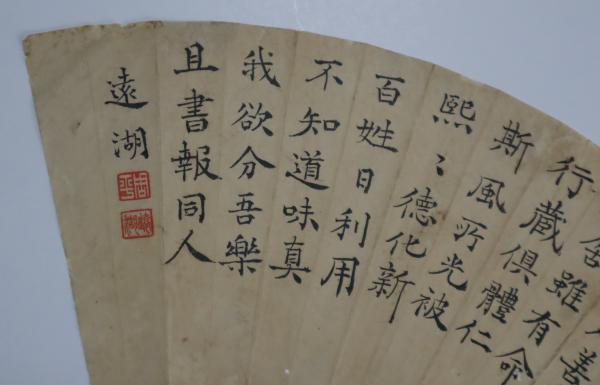 善
舍雖有命
行藏俱體仁
斯風所光被
熙〻德化新
百姓日利用
不知道味真
我欲分吾樂
且書報同人
遠湖